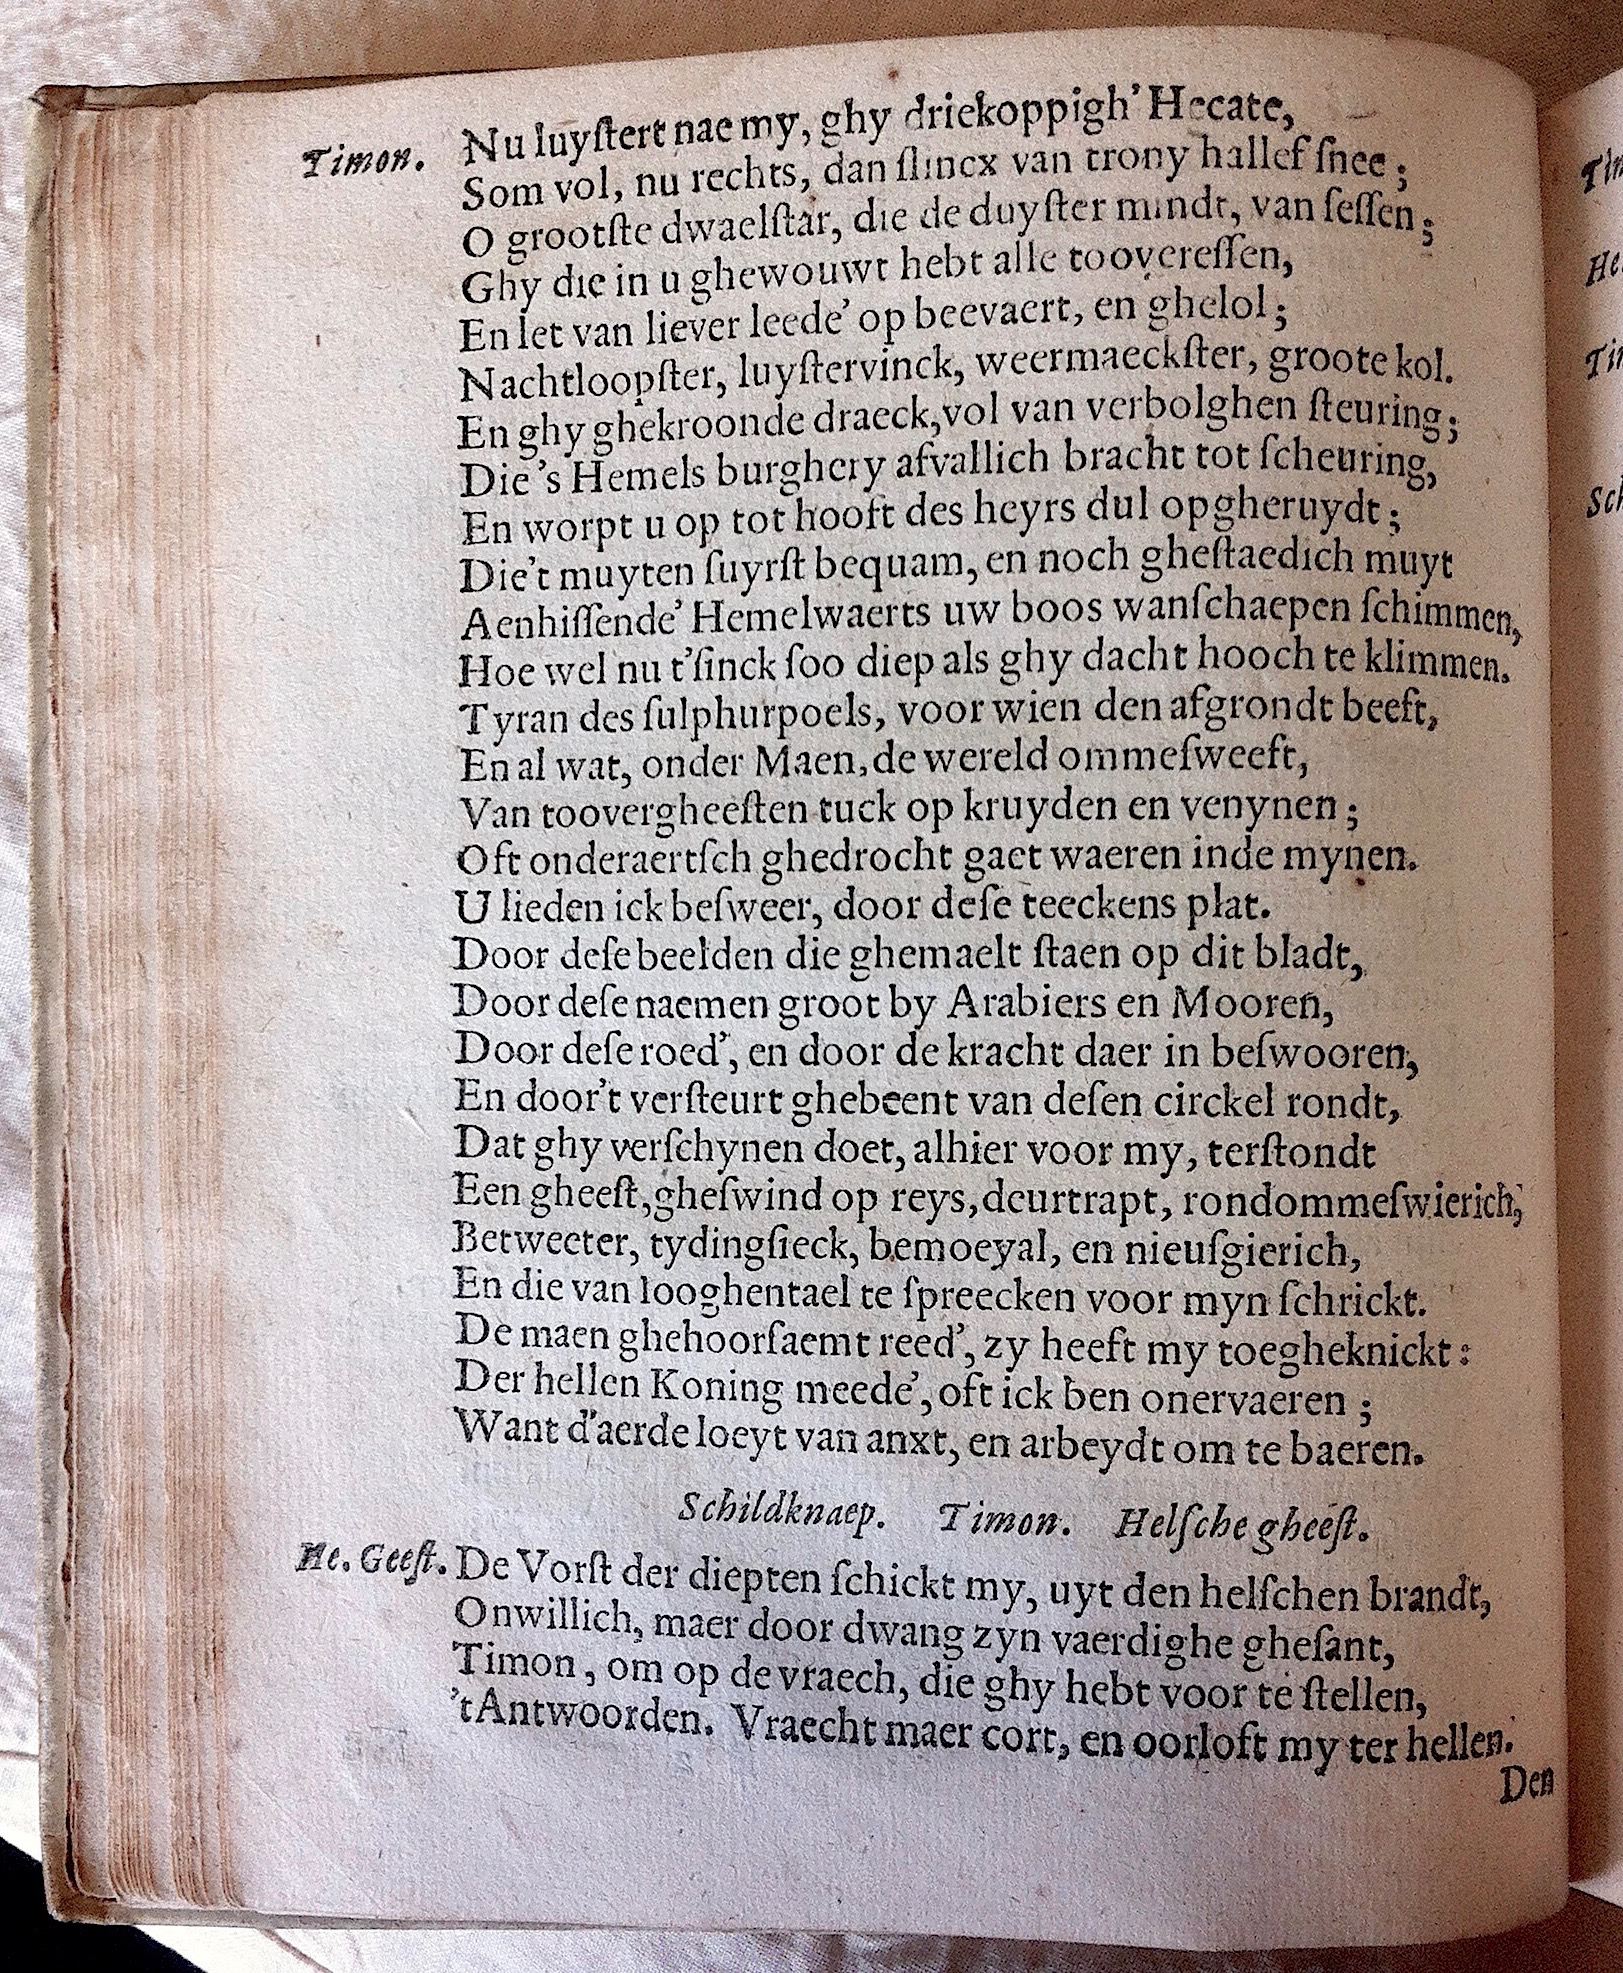 Timon. Nu luyſtert nae my, ghy driekoppigh' Hecate,
Som vol, nu rechts, dan ſlincx van trony hallef ſnee;
O grootſte dwaelſtar, die de duyſter mindt, van ſeſſen;
Ghy die in u ghewouwt hebt alle toovereſſen,
En let van liever leede' op beevaert, en ghelol;
Nachtloopſter, luyſtervinck, weermaeckſter, groote kol.
En ghy ghekroonde draeck, vol van verbolghen ſteuring;
Die 's Hemels burghery afvallich bracht tot ſcheuring,
En worpt u op tot hooft des heyrs dul opgheruydt;
Die't muyten ſuyrſt bequam, en noch gheſtaedich muyt
Aenhiſſende' Hemelwaerts uw boos wanſchaepen ſchimmen,
Hoe wel nu t'ſinck ſoo diep als ghy dacht hooch te klimmen.
Tyran des ſulphurpoels, voor wien den afgrondt beeft,
En al wat, onder Maen, de wereld ommeſweeft,
Van toovergheeſten tuck op kruyden en venynen;
Oft onderaertſch ghedrocht gaet waeren inde mynen.
U lieden ick beſweer, door deſe teeckens plat.
Door deſe beelden die ghemaelt ſtaen op dit bladt,
Door deſe naemen groot by Arabiers en Mooren,
Door deſe roed', en door de kracht daer in beſwooren,
En door't verſteurt ghebeent van deſen circkel rondt,
Dat ghy verſchynen doet, alhier voor my, terſtondt
Een gheeſt, gheſwind op reys, deurtrapt, rondommeſwierich,
Betweeter, tydingſieck, bemoeyal, en nieuſgierich,
En die van looghentael te ſpreecken voor myn ſchrickt.
De maen ghehoorſaemt reed', zy heeft my toegheknickt:
Der hellen Koning meede', oft ick ben onervaeren;
Want d'aerde loeyt van anxt, en arbeydt om te baeren.
Schildknaep. Timon. Helſche gheeſt.
He. Geeſt. De Vorſt der diepten ſchickt my, uyt den helſchen brandt,
Onwillich, maer door dwang zyn vaerdighe gheſant,
Timon, om op de vraech, die ghy hebt voor te ſtellen,
't Antwoorden. Vraecht maer cort, en oorloft my ter hellen.
Den